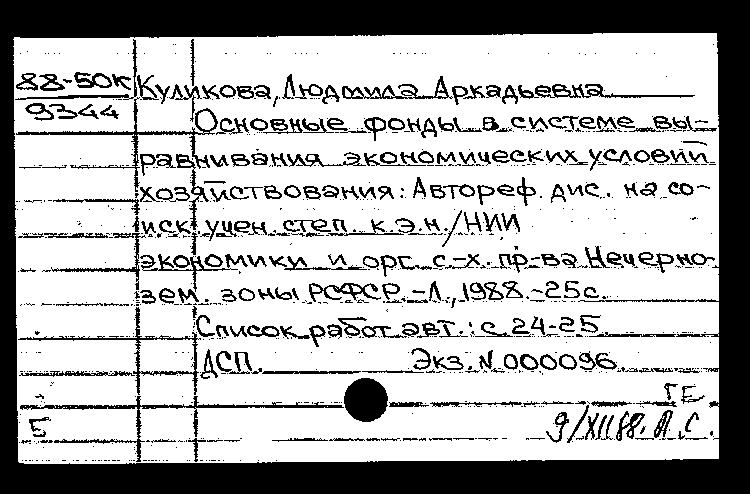 88-50К
9344
Куликова, Людмила Аркадьевна
Основные фонды в системе вы-
равнивания экономических условий
хозяйствования: Автореф. дис. на со-
иск. учен. степ. к.э.н./НИИ
экономики и орг. с-х. пр-ва Нечерно-
зем. зоны РСФСР.-Л., 1988.-25с.
Список работ авт.: с. 24-25.
ДСП. Экз. N 000096.
ГЕ
Б
9/XII88. Л.С.